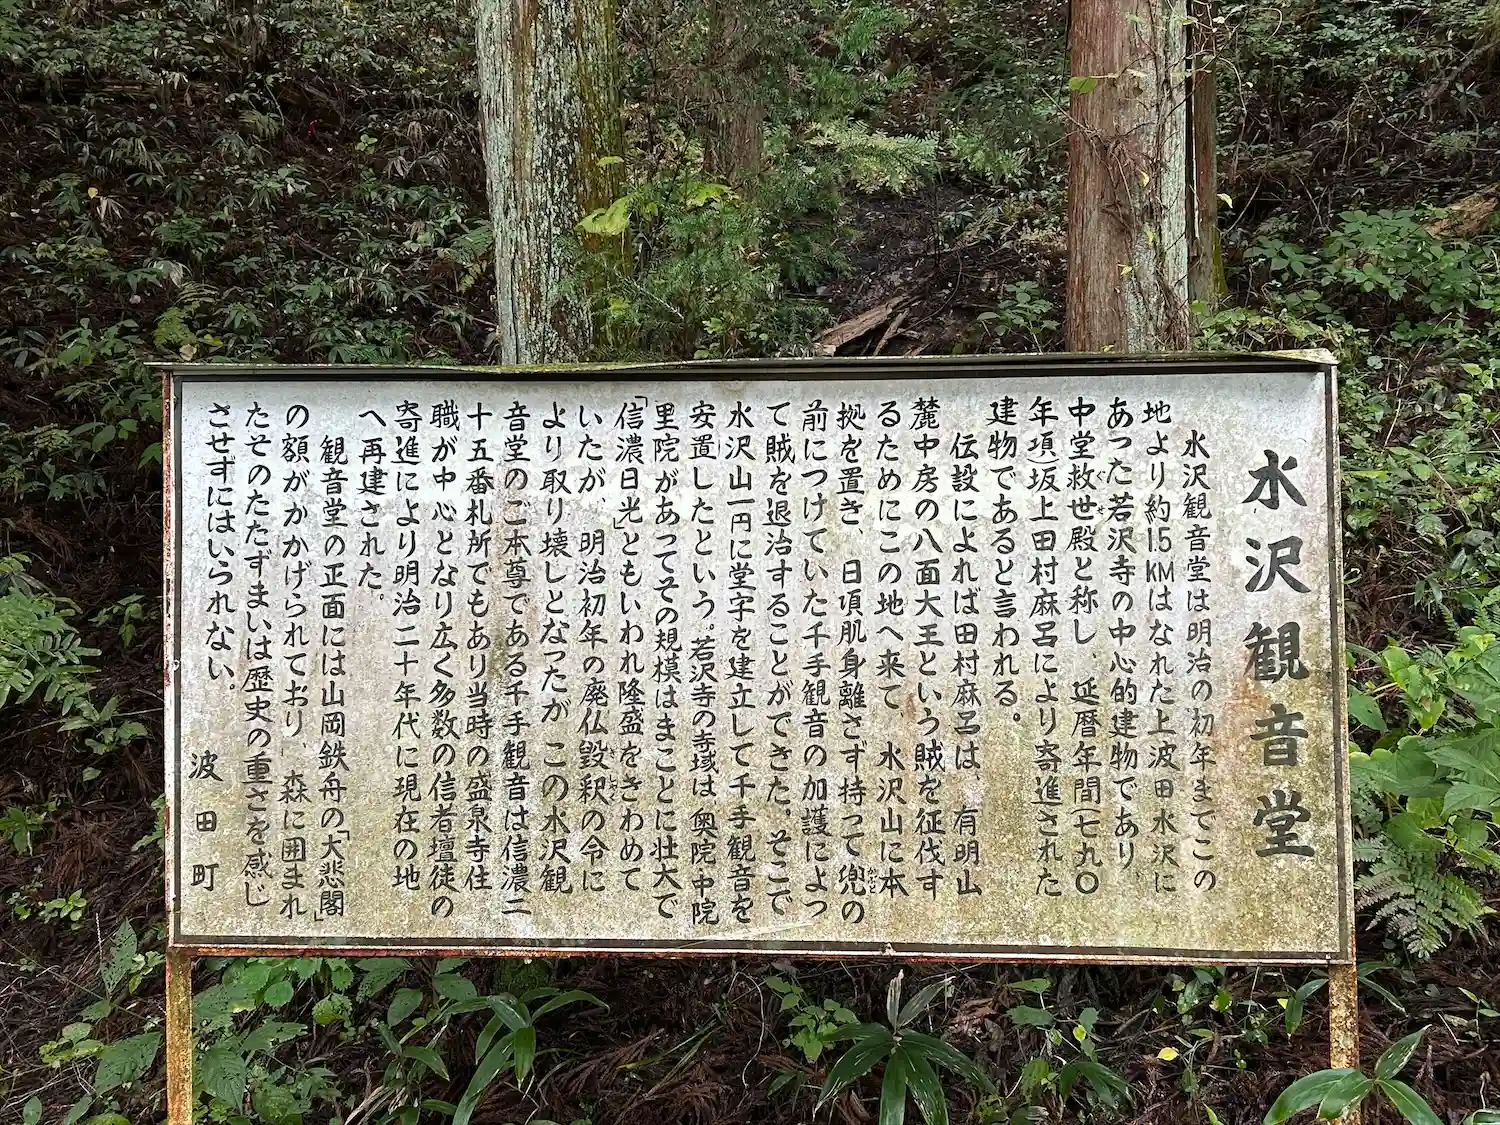 水沢観音堂
水沢観音堂は明治の初年までこの
地より約1.5KMはなれた上波田水沢に
あった若沢寺の中心的建物であり
中堂救世殿と称し、延暦年間(七九〇
年項坂上田村麻呂により寄進された
建物であると言われる。
伝設によれば田村麻呂は、有明山
麓中房の八面大王という賊を征伐す
るためにこの地へ来て、水沢山に本
拠を置き、日項肌身離さず持って兜の
前につけていた千手観音の加護によっ
て賊を退治することができた。そこで
水沢山一円に堂宇を建立して千手観音を
安置したという。若沢寺の寺域は奥院中院
里院があってその規模はまことに壮大で
「信濃日光」ともいわれ隆盛をきわめて
いたが、明治初年の廃仏毀釈の令に
より取り壊しとなったが、この水沢観
音堂のご本尊である千手観音は信濃二
十五番札所でもあり当時の盛泉寺住
職が中心となり広く多数の信者壇徒の
寄進により明治二十年代に現在の地
へ再建された。
観音堂の正面には山岡鉄舟の「大悲閣」
の額がかかげられており、森に囲まれ
たそのたたずまいは歴史の重さを感じ
させずにはいられない。
波田町